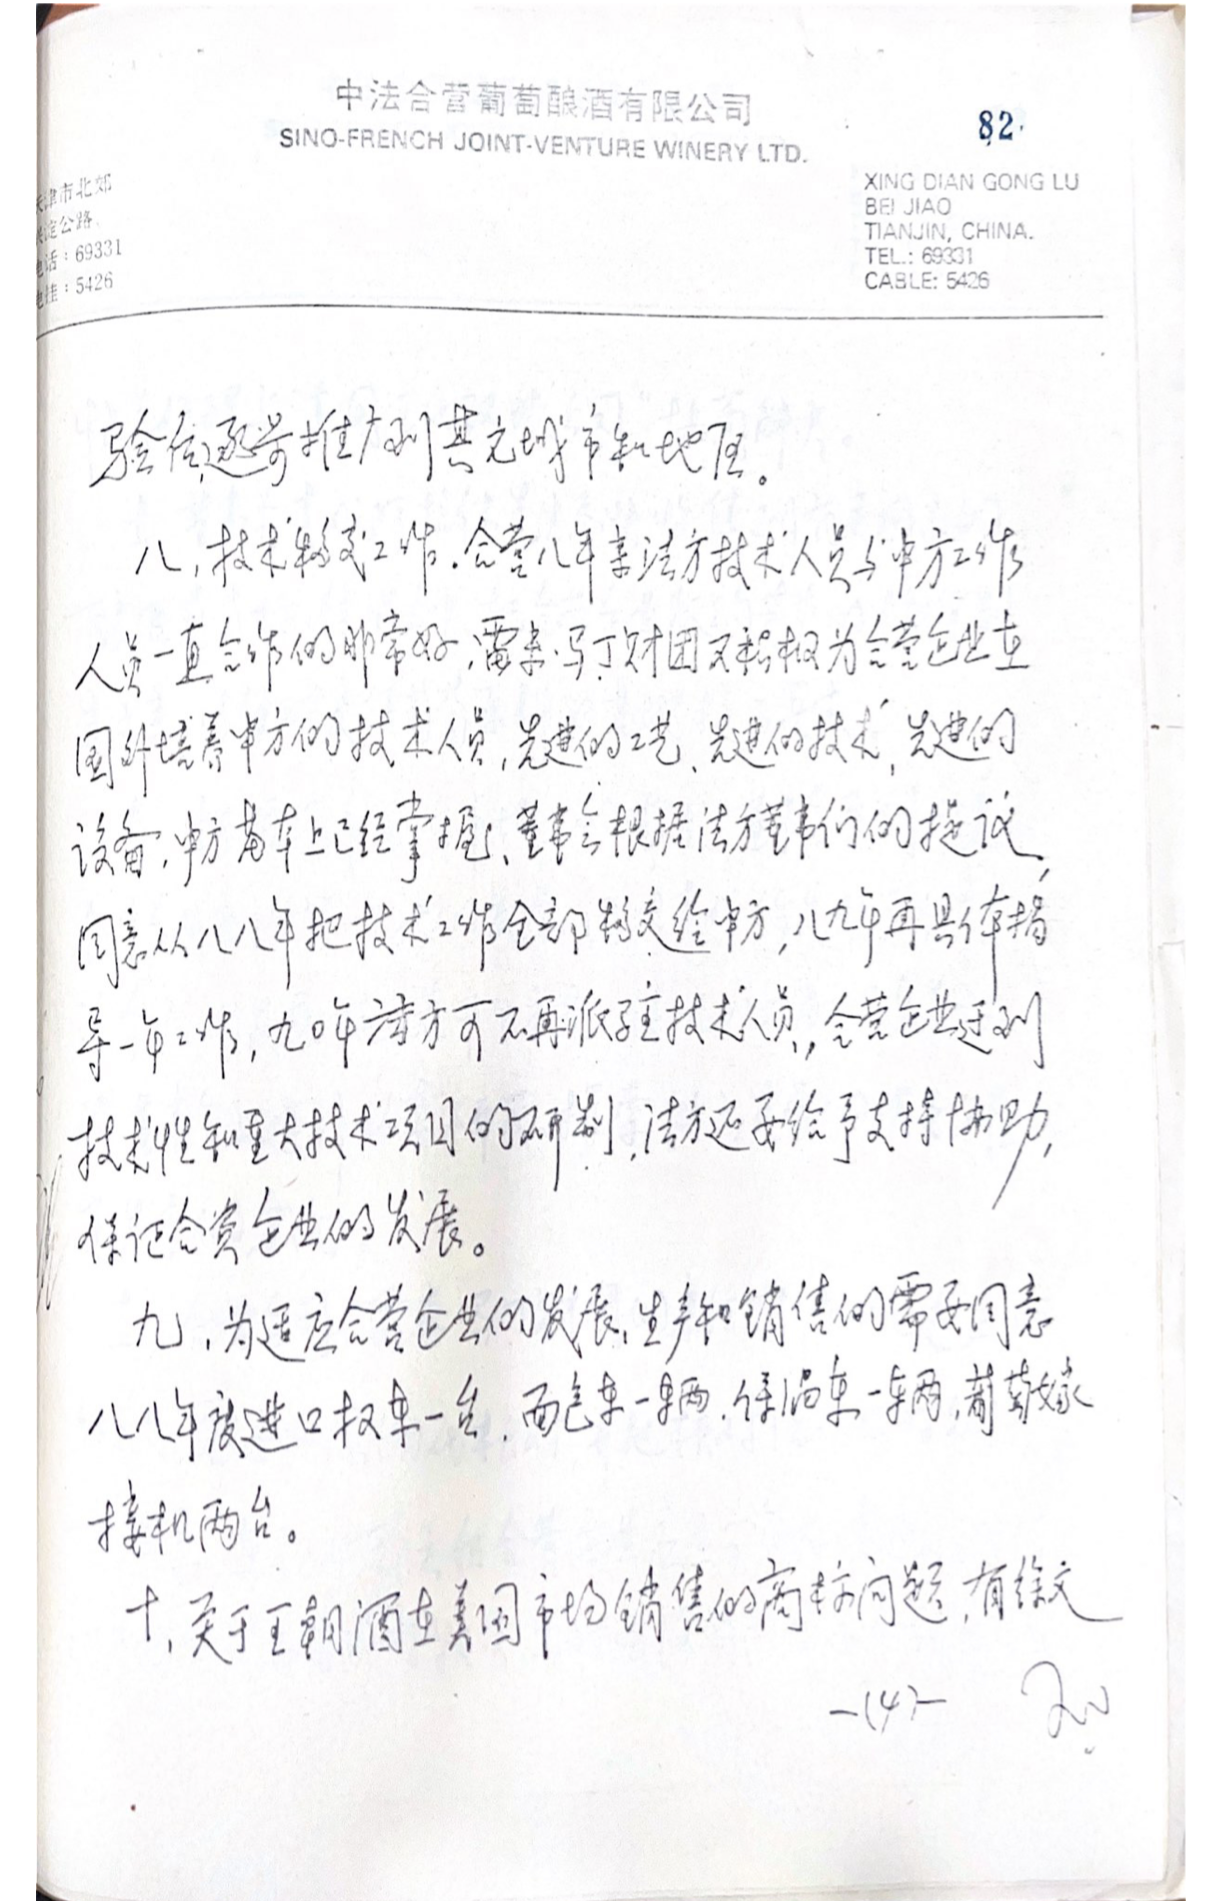 中法合营葡萄酿酒有限公司
SINO-FRENCH JOINT-VENTURE WINERY LTD.
82
天津市北郊
兴淀公路
电话:69331
电挂:5426
XING DIAN GONG LU
BEI JIAO
TIANJIN, CHINA.
TEL.: 69331
CABLE: 5426
验后逐步推广到其它城市和地区。
八,技术移交工作.合营八年来法方技术人员与中方工作
人员一直合作的非常好,雷米·马丁财团又积极为合营企业在
国外培养中方的技术人员,先进的工艺、先进的技术,先进的
设备,中方基本上已经掌握,董事会根据法方董事们的提议,
同意从八八年把技术工作全部移交给中方,八九年再具体指
导一年工作,九〇年法方可不再派驻技术人员,合营企业遇到
技术性和重大技术项目的研制,法方还要给予支持协助,
保证合资企业的发展。
九,为适应合营企业的发展,生产和销售的需要同意
八八年度进口权车一台.面包车一辆.保温车一辆,葡萄嫁
接机两台。
十,关于王朝酒在美国市场销售的商标问题,有徐文
-(4)-